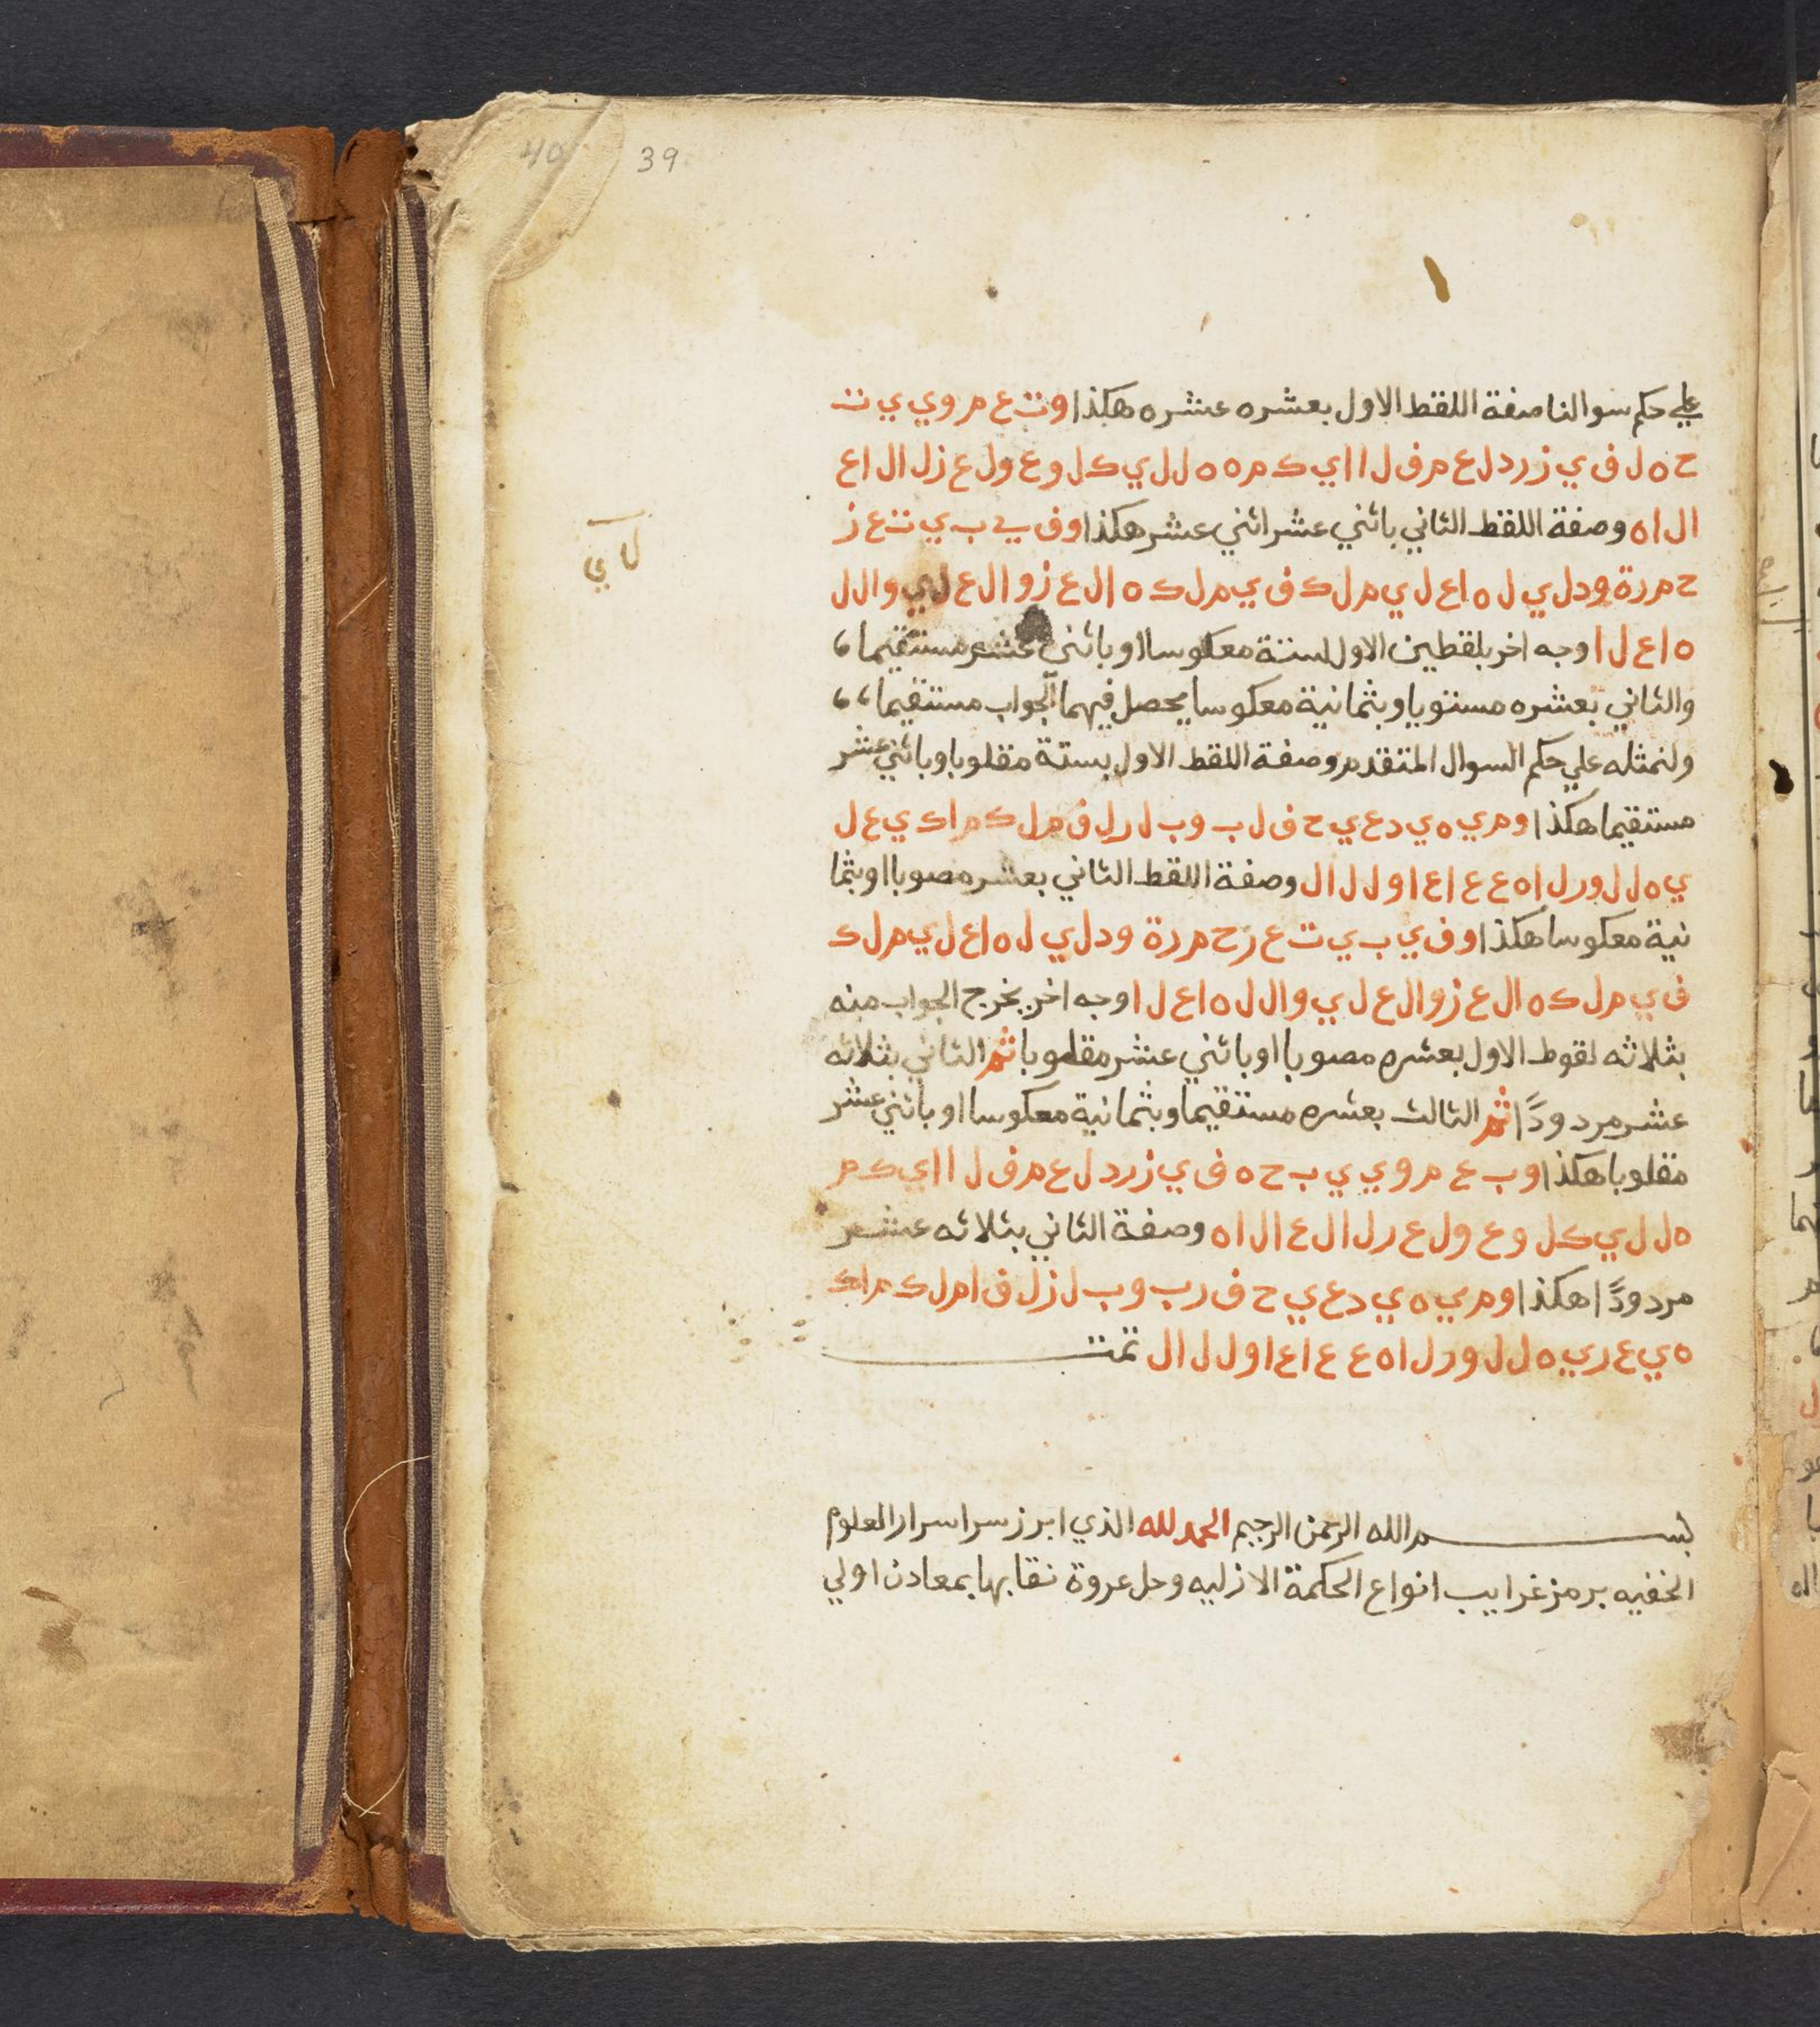 40 39
علي حكم سوالنا صفة اللقط الاول بعشره عشره هكذا و ت ع م و ي ي ت
ح ه ل ف ي ز ر د ل ع م ف ل ا ا ي ك م ه ه ل ل ي ك ل و ع و ل ع ز ل ا ل ا ع
ا ل ا ه وصفة اللقط الثاني باثني عشر اثني عشر هكذا و ف ي ب ي ت ع ز
ح م ر ة و د ل ي ل ه ا ع ل ي م ل ك ف ي م ل ك ه ا ل ع ز و ا ل ع ل ي و ا ل ل
ه ا ع ل ا وجه اخر بلقطين الاول لستة معكوسا او باثني عشر مستقيما
والثاني بعشره مستويا وبثمانية معكوسا يحصل فيهما الجواب مستقيما
ولنمثله علي حكم السوال المتقدم وصفة اللقط الاول بستة مقلوبا وباثني عشر
مستقيما هكذا و م ي ه ي د ع ي ح ف ل ب و ب ل ر ل ف م ل ك م ا ك ي ع ل
ي ه ل ل و ر ل ا ه ع ع ا ع ا و ل ل ا ل وصفة اللقط الثاني بعشر مصوبا او بثما
نية معكوسا هكذا و ف ي ب ي ت ع ز ح م ر ة و د ل ي ل ه ا ع ل ي م ل ك
ف ي م ل ك ه ا ل ع ز و ا ل ع ل ي و ا ل ل ه ا ع ل ا وجه اخر يخرج الجواب منه
بثلاثه لقوط الاول بعشره مصوبا او باثني عشر مقلوبا ثم الثاني بثلاثه
عشر مردودًا ثم الثالث بعشره مستقيما وبثمانية معكوسا او باثني عشر
مقلوبا هكذا و ب ع م و ي ي ب ح ه ف ي ز ر د ل ع م ف ل ا ا ي ك م
ه ل ل ي ك ل و ع و ل ع ر ل ا ل ع ا ل ا ه وصفة الثاني بثلاثه عشر
مردودًا هكذا و م ي ه ي د ع ي ح ف ر ب و ب ل ز ل ف ا م ل ك م ا ك
ه ي ع ر ي ه ل ل و ر ل ا ه ع ع ا ع ا و ل ل ا ل تمت
بسم الله الرحمن الرحيم الحمد لله الذي ابرز سرا سرار العلوم
الخفيه برمز غرايب انواع الحكمة الازليه وحل عروة نقابها بمعادن اولي